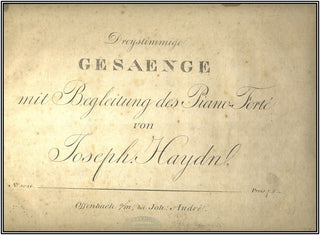 Dreystimmige
GESAENGE
mit Begleitung des Piano-Forté
von
Joseph Haydn.
Nº Preis
Offenbach a/m, bei Joh: André.